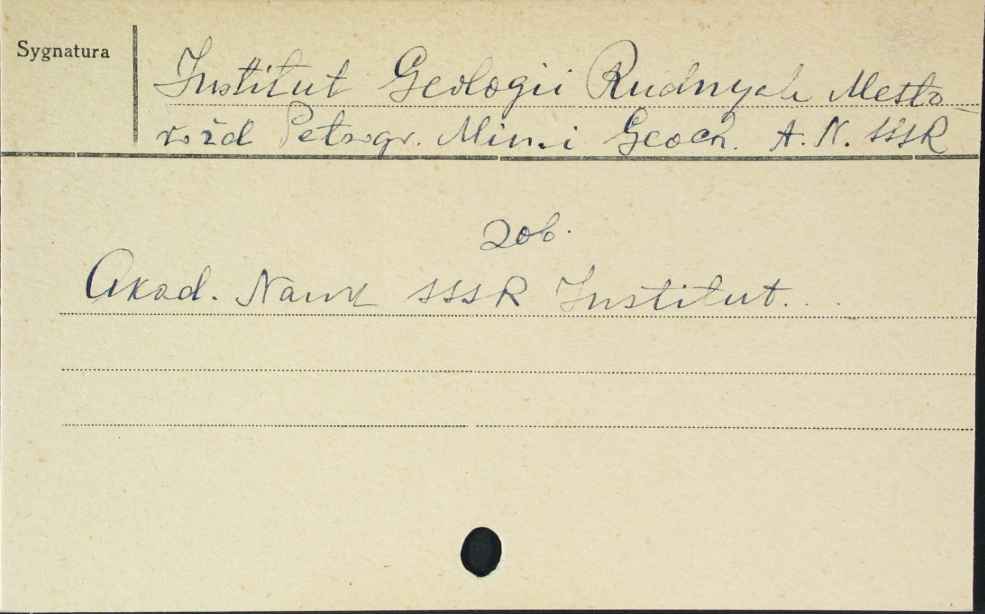 Sygnatura
Institut Geologii Rudnych Mesto-
rožd Petrogr. Min. i Geoch. A. N. SSSR
Zob.
Akad. Nauk SSSR Institut...